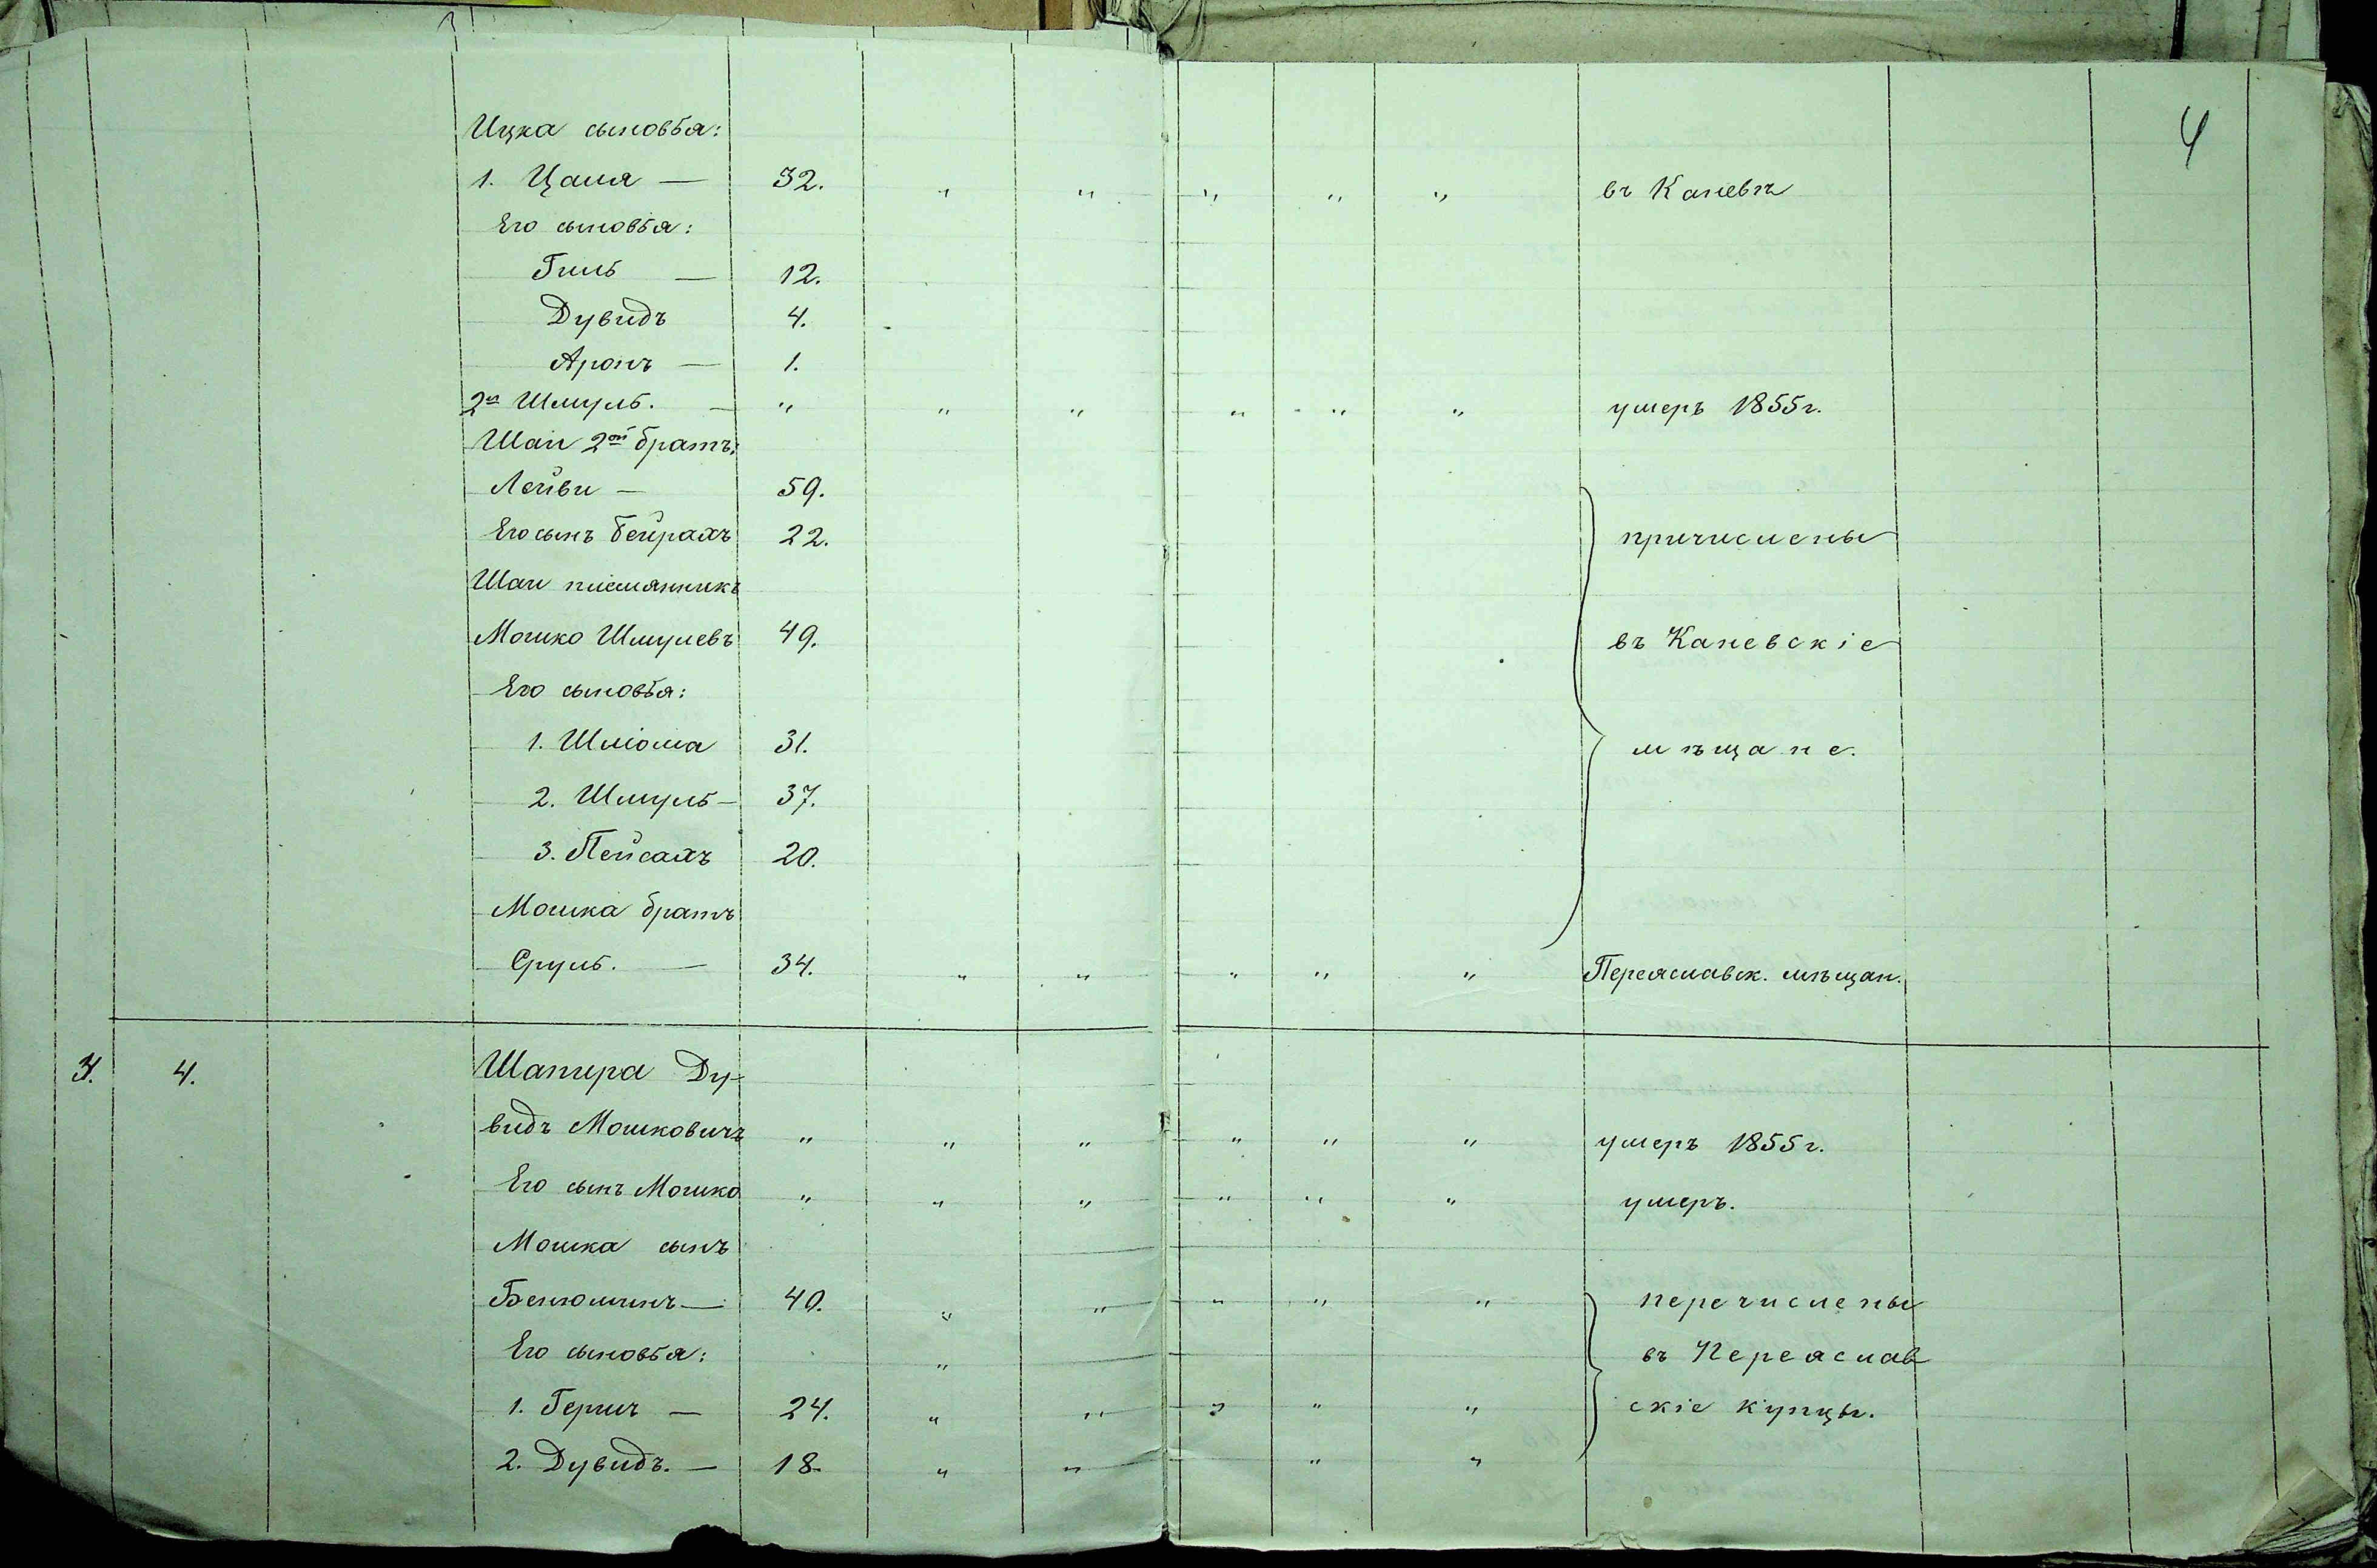 4
Ицка сыновья:
1. Цаля — 32. „ „ „ „ „ въ Каневѣ
Его сыновья:
Гиль — 12.
Дувидъ 4.
Аронъ — 1.
2й Шмуль. — „ „ „ „ „ „ умеръ 1855 г.
Шаи 2ой братъ:
Лейви — 59.
Его сынъ Бейрахъ 22. причислены
Шаи племянникъ
Мошко Шмулевъ 49. въ Каневскіе
Его сыновья:
1. Шліома 31. мѣщане.
2. Шмуль — 37.
3. Пейсахъ 20.
Мошка братъ
Сруль. — 34. „ „ „ „ „ Переяславск. мѣщан.
3. 4. Шапира Ду-
видъ Мошковичъ „ „ „ „ „ „ умеръ 1855 г.
Его сынъ Мошко „ „ „ „ „ „ умеръ.
Мошка сынъ
Бенюминъ — 40. „ „ „ „ „ перечислены
Его сыновья: „ въ Переяслав
1. Герш — 24. „ „ „ „ „ скіе купцы.
2. Дувидъ. — 18. „ „ „ „